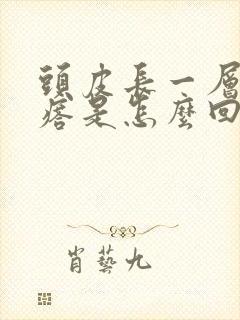 頭皮長一層
痞是怎麼回
肖藝九